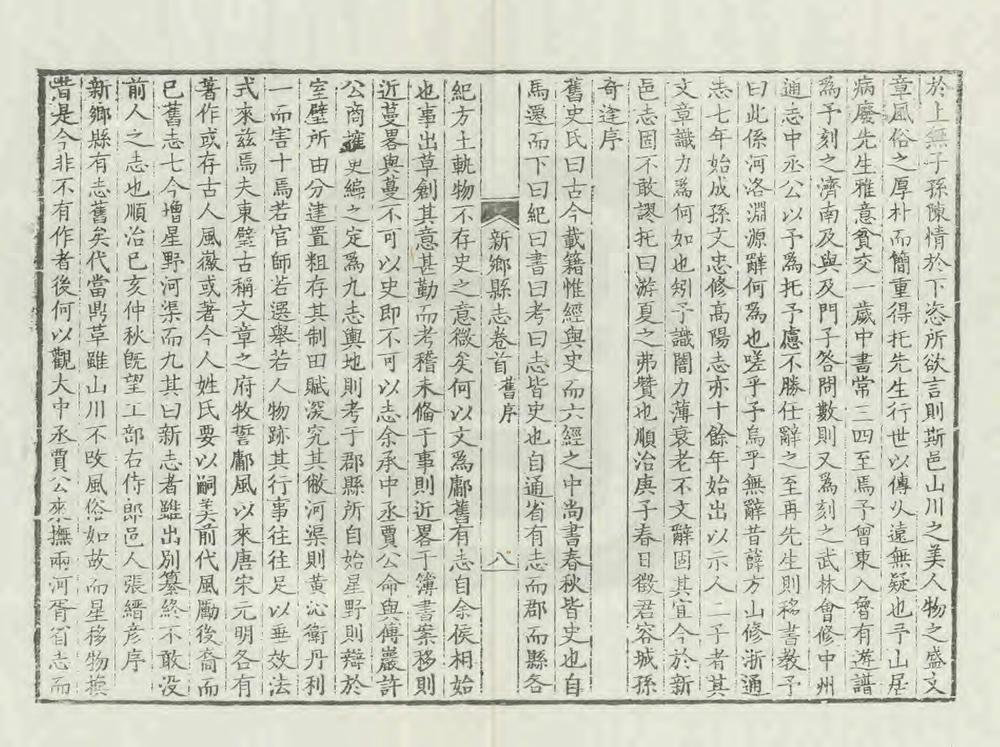 於上無子孫陳情於下恣所欲言則斯邑山川之美人物之盛文
章風俗之厚朴而簡重得托先生行世以傳乆遠無疑也予山居
病廢先生雅意貧交一歲中書常三四至焉予曾東入魯有遊譜
爲予刻之濟南及與及門子答問數則又爲刻之武林會修中州
通志中丞公以予爲托予慮不勝仕辭之至再先生則移書教予
曰此係河洛淵源辭何爲也嗟乎子烏乎無辭昔薛方山修浙通
志七年始成孫文忠修高陽志亦十餘年始出以示人二子者其
文章識力爲何如也矧予識闇力薄衰老不文辭固其宜今於新
邑志固不敢謬托曰游夏之弗贊也順治庚子春日徵君容城孫
奇逢序
舊史氏曰古今載籍惟經與史而六經之中尚書春秋皆史也自
馬遷而下曰紀曰書曰考曰志皆史也自通省有志而郡而縣各
新鄉縣志卷首 舊序 八
紀方土軌物不存史之意微矣何以文爲鄘舊有志自余侯相始
也事出草創其意甚勤而考稽未偹于事則近畧于簿書案移則
近蔓畧與蔓不可以史即不可以志余承中丞賈公命與傅巖許
公商搉史編之定爲九志輿地則考于郡縣所自始星野則辯於
室壁所由分建置粗存其制田賦深究其敝河渠則黃沁衛丹利
一而害十焉若官師若選舉若人物跡其行事往往足以垂效法
式來茲焉夫東壁古稱文章之府牧誓鄘風以來唐宋元明各有
著作或存古人風徽或著今人姓氏要以嗣美前代風勵後裔而
已舊志七今增星野河渠而九其曰新志者雖出別纂終不敢没
前人之志也順治己亥仲秋旣望工部右侍郎邑人張縉彦序
新鄉縣有志舊矣代當鼎草雖山川不改風俗如故而星移物換
昔是今非不有作者後何以觀大中丞賈公來撫兩河胥省志而